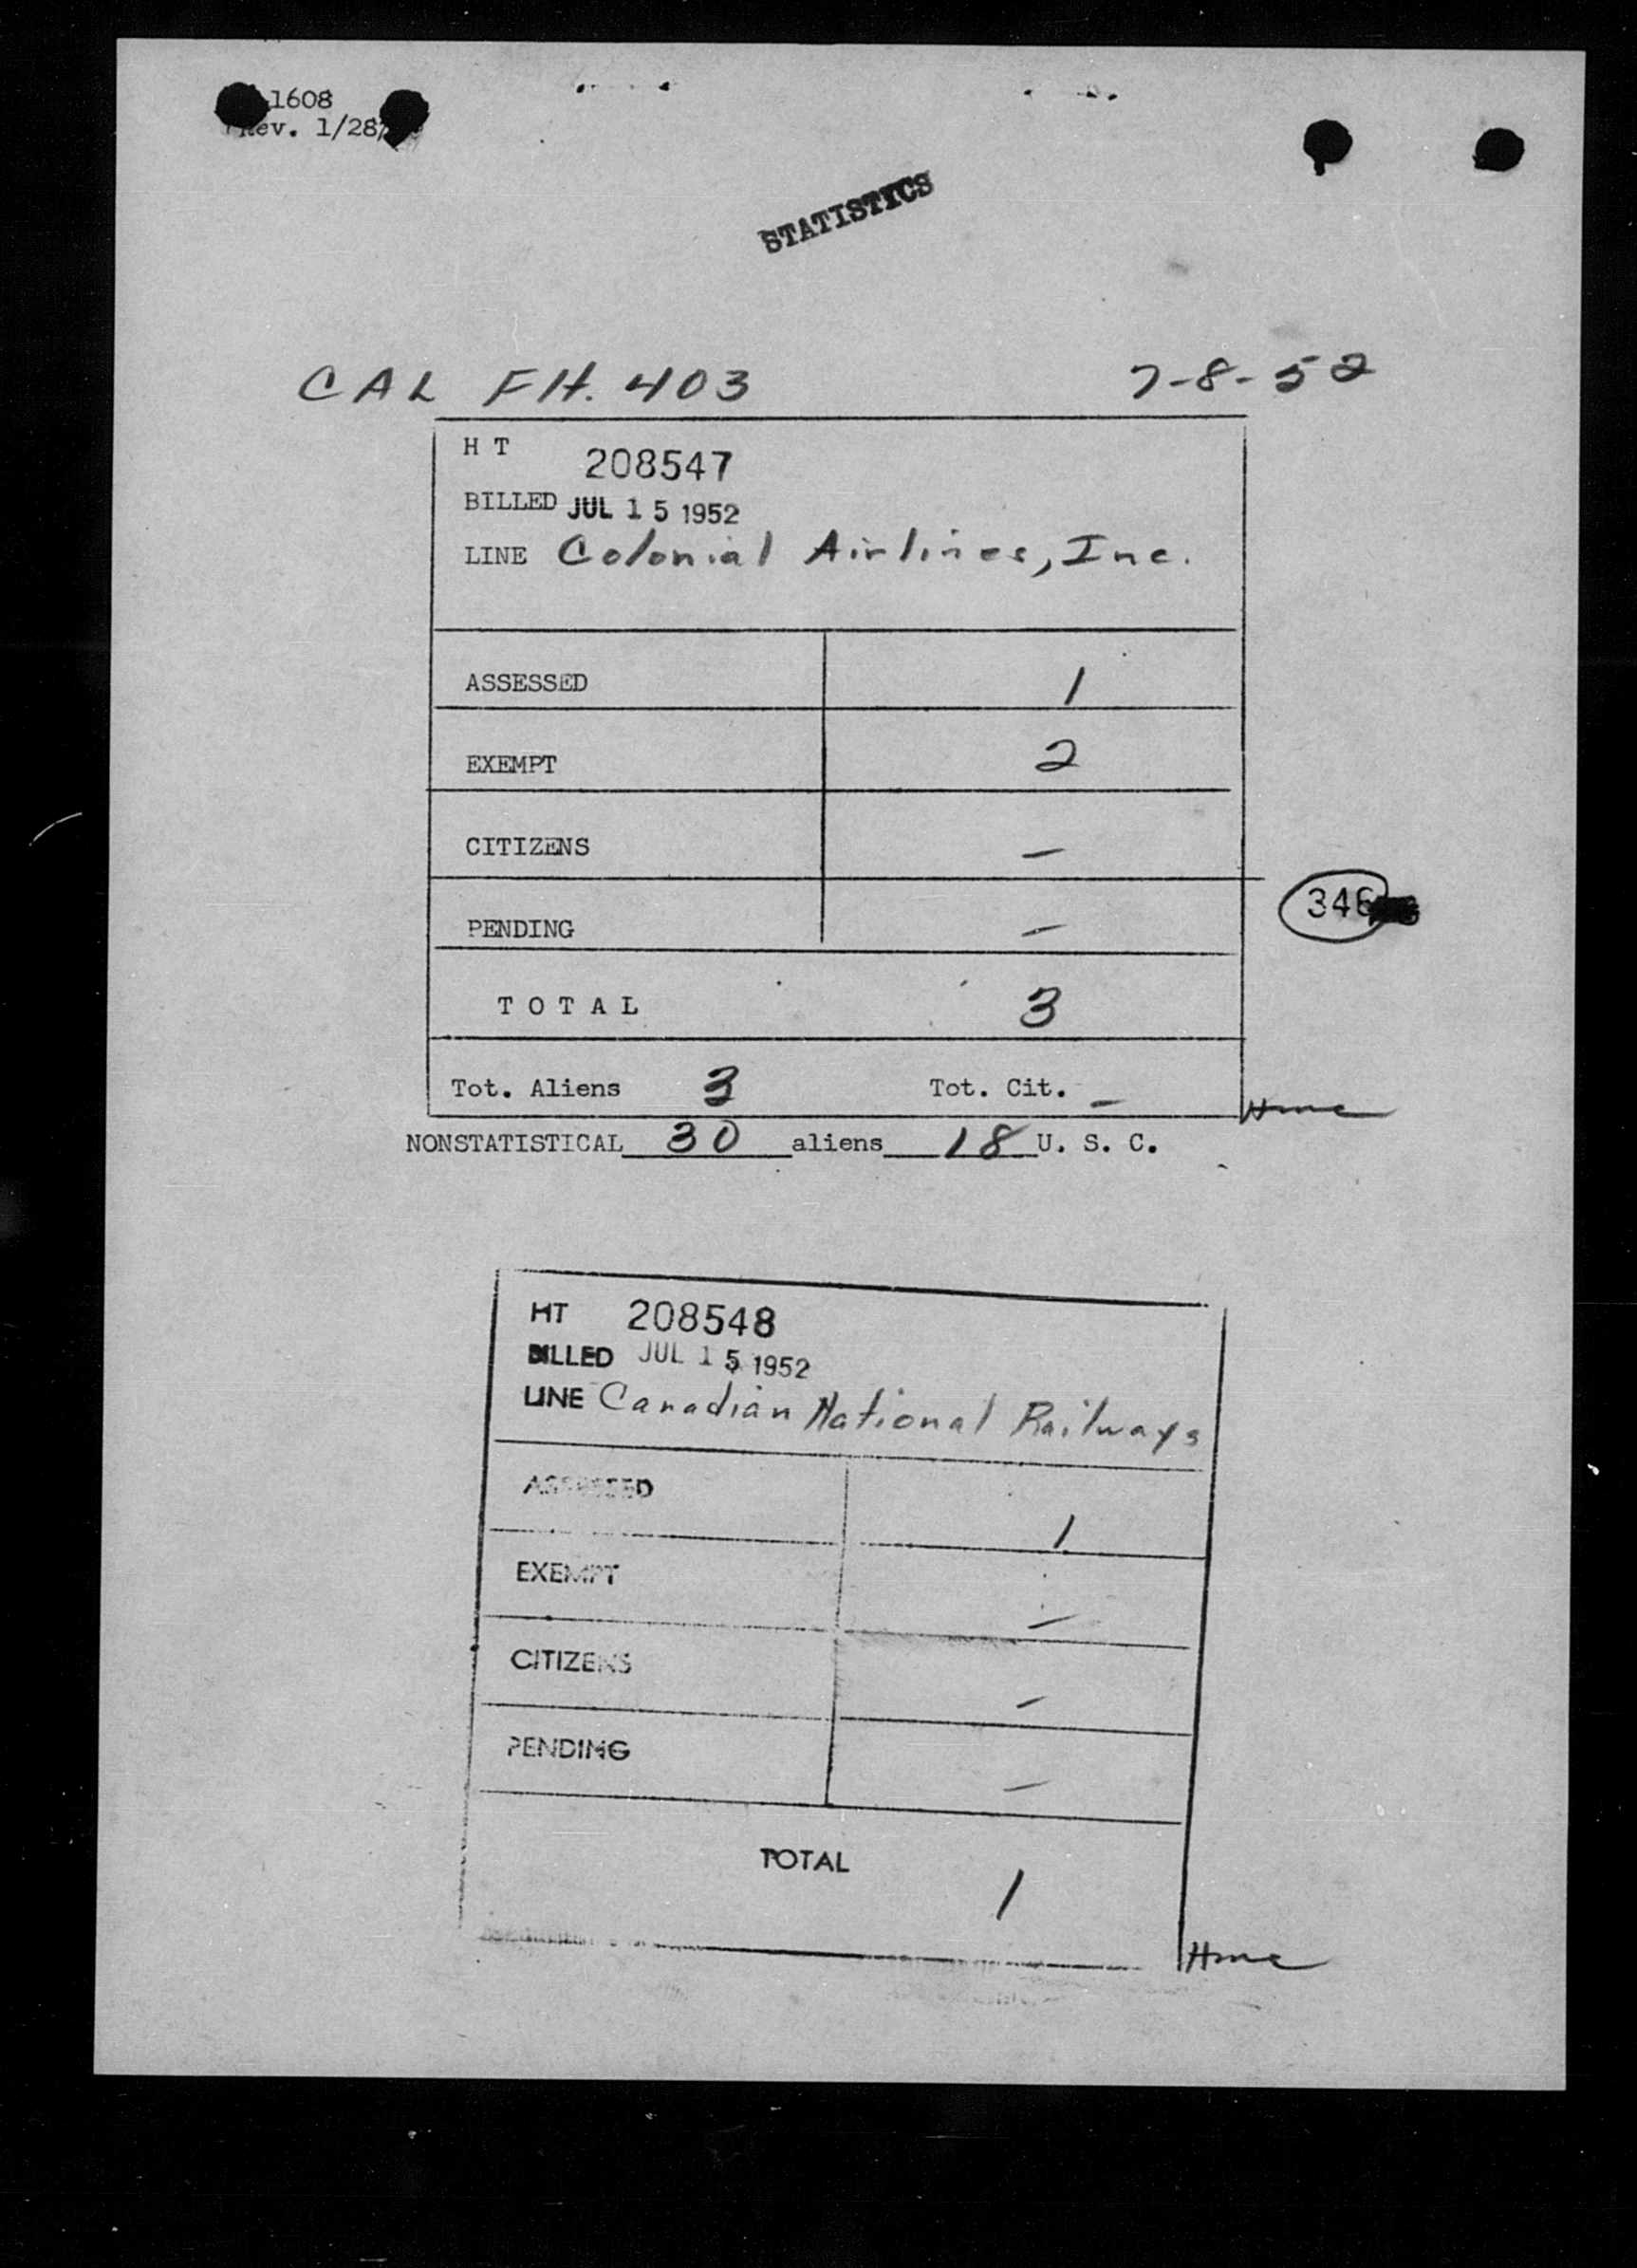 1608
Rev. 1/28/
STATISTICS
CAL Flt. 403 7-8-52
H T 208547
BILLED JUL 15 1952
LINE Colonial Airlines, Inc.
ASSESSED 1
EXEMPT 2
CITIZENS –
PENDING –
T O T A L 3
346
Tot. Aliens 3 Tot. Cit. –
NONSTATISTICAL 30 aliens 18 U. S. C.
HT 208548
BILLED JUL 15 1952
LINE Canadian National Railways
ASSESSED 1
EXEMPT –
CITIZENS –
PENDING –
TOTAL 1